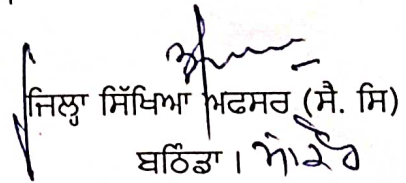 ਜਿਲ੍ਹਾ ਸਿੱਖਿਆ ਅਫਸਰ (ਸੈ. ਸਿ)
ਬਠਿੰਡਾ ।